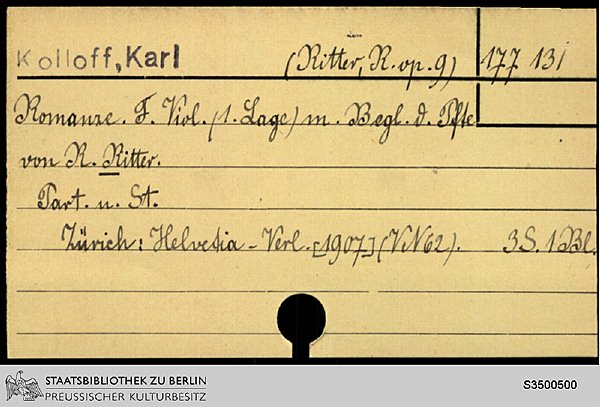 Kolloff, Karl (Ritter, R. op. 9) 177 131
Romanze. F. Viol. (1. Lage) m. Begl. d. Pfte
von R. Ritter.
Part. u. St.
Zürich: Helvetia-Verl. [1907] (VN 62). 3 S. 1 Bl.
STAATSBIBLIOTHEK ZU BERLIN
PREUSSISCHER KULTURBESITZ
S3500500